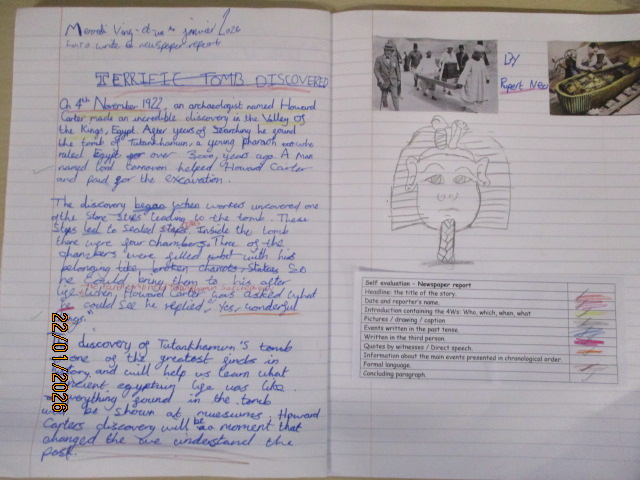 janvier 2026
how to write a newspaper report
TERRIFIC TOMB DISCOVERED
On 4th November 1922, an archaeologist named Howard
Carter made an incredible discovery in the Valley of
the Kings, Egypt. After years of searching he found
the tomb of Tutankhamun, a young pharaoh who
ruled Egypt for over 3000, years ago. A man
named lord Carnavon helped Howard Carter
and paid for the excavation.
The discovery began when workers uncovered one
of the stone steps leading to the tomb. These
steps led to sealed Inside the tomb
there were four chambers. Three of the
chambers were filled with his
belonging like broken chariots, So
he could bring them to his after
life. when, Howard Carter was asked what
he could see he replied, "Yes, wonderful
discovery of Tutankhamun's tomb
one of the greatest finds in
and will help us learn what
egyptian life was like.
everything found in the tomb
be shown at museums. Howard
Carters discovery will be a moment that
changed the we understand the
past.
22/01/2026
By
Rupert New
Self evaluation – Newspaper report
Headline: the title of the story.
Date and reporter's name.
Introduction containing the 4Ws: Who, which, when, what
Pictures / drawing / caption
Events written in the past tense.
Written in the third person.
Quotes by witnesses / Direct speech.
Information about the main events presented in chronological order.
Formal language.
Concluding paragraph.